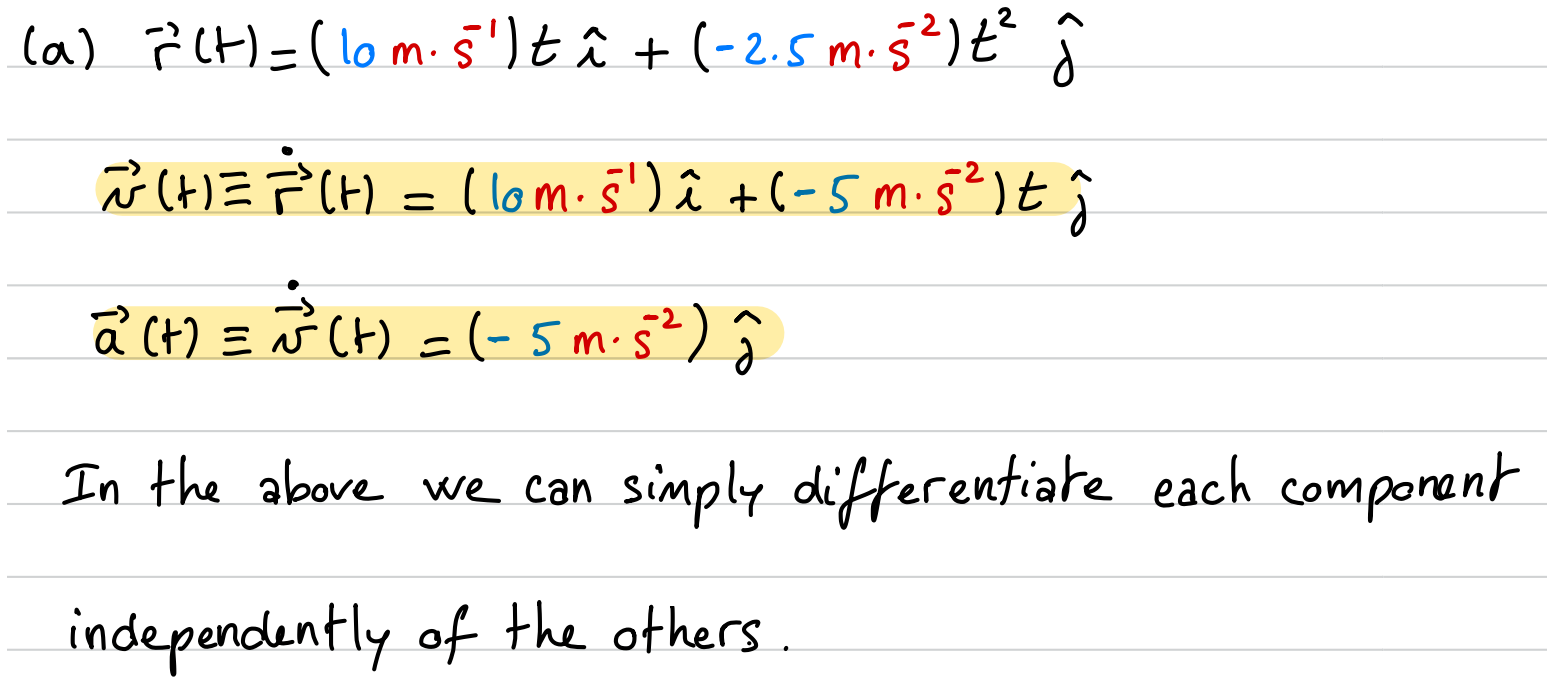 (a) r⃗(t) = (10 m·s⁻¹) t î + (-2.5 m·s⁻²) t² ĵ
v⃗(t) ≡ ṙ⃗(t) = (10 m·s⁻¹) î + (-5 m·s⁻²) t ĵ
a⃗(t) ≡ v̇⃗(t) = (-5 m·s⁻²) ĵ
In the above we can simply differentiate each component
independently of the others.